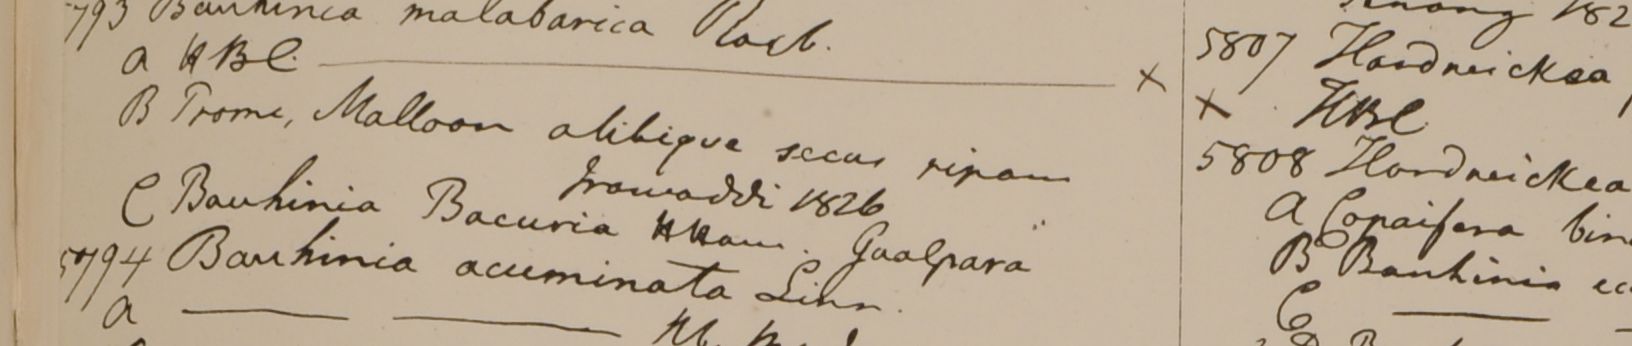 5793 Bauhinia malabarica Roxb.
a HBC. x
B Prome, Malloon alibique secus ripam
Irawaddi 1826
C Bauhinia Bacuria HHam. Goalpara
5794 Bauhinia acuminata Linn.
a
182
5807 Hardwickea
x HBC
5808 Hardwickea
a Copaifera
B Bauhinia
C